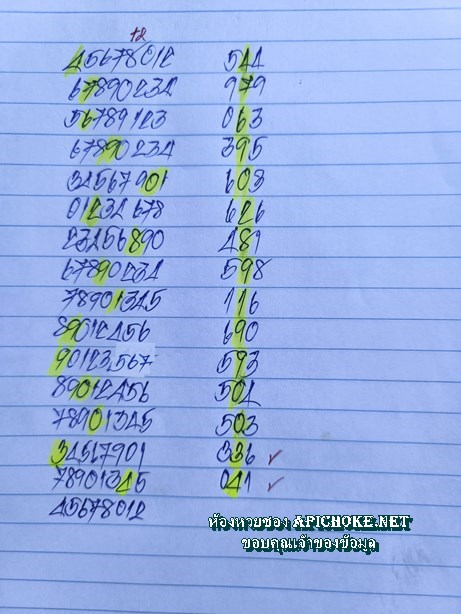 12
45678012 544
67890234 979
56789123 063
67890234 395
34567901 603
01234678 626
23456890 481
67890234 598
78901345 116
89012456 690
90123567 593
89012456 504
78901345 503
34567901 336 ✓
78901345 041 ✓
45678012
ห้องหวยซอง APICHOKE.NET
ขอบคุณเจ้าของข้อมูล